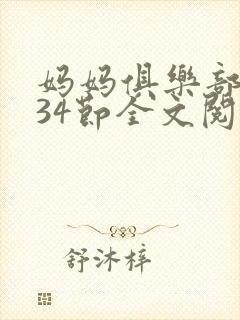 妈妈俱樂部
34節全文閱
舒沐梓